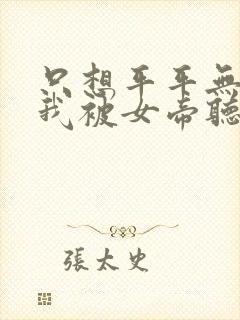 只想平平無
我被女帝聽
張太史